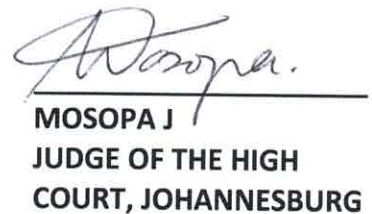 Mosopa.
MOSOPA J
JUDGE OF THE HIGH
COURT, JOHANNESBURG